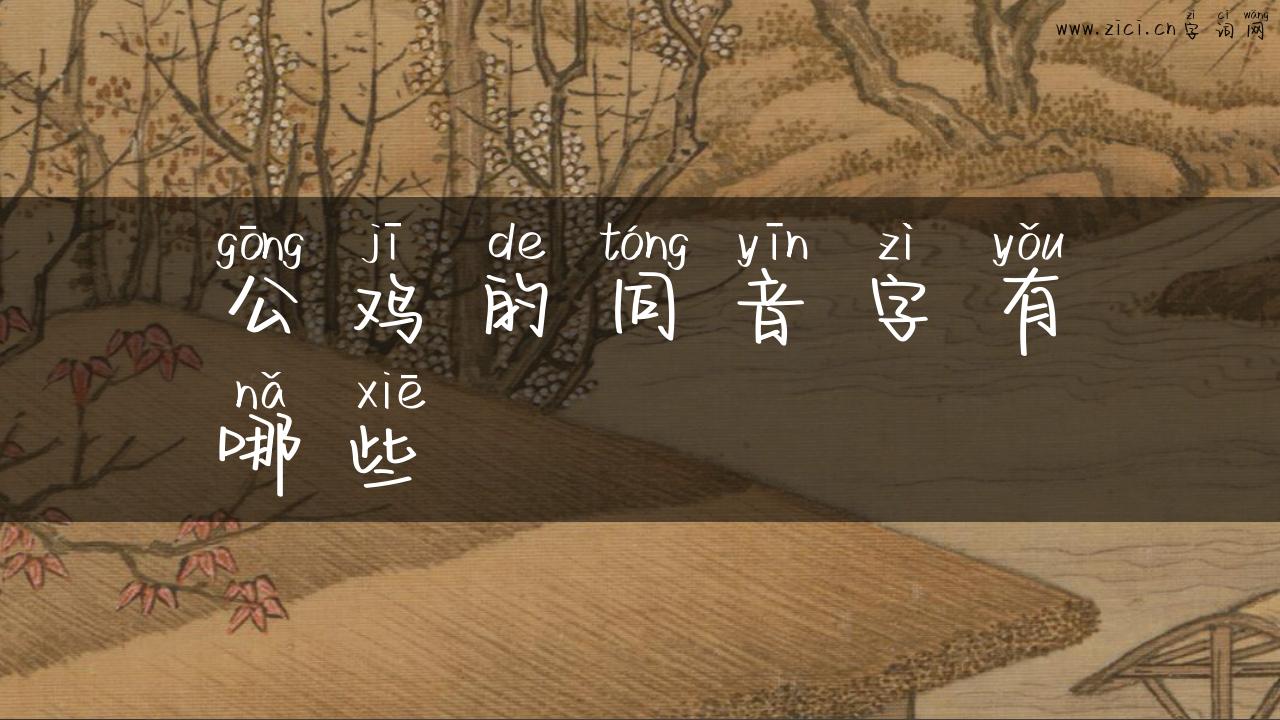 zì cí wǎng
www.zici.cn字词网
gōng jī de tóng yīn zì yǒu
公鸡的同音字有
nǎ xiē
哪些